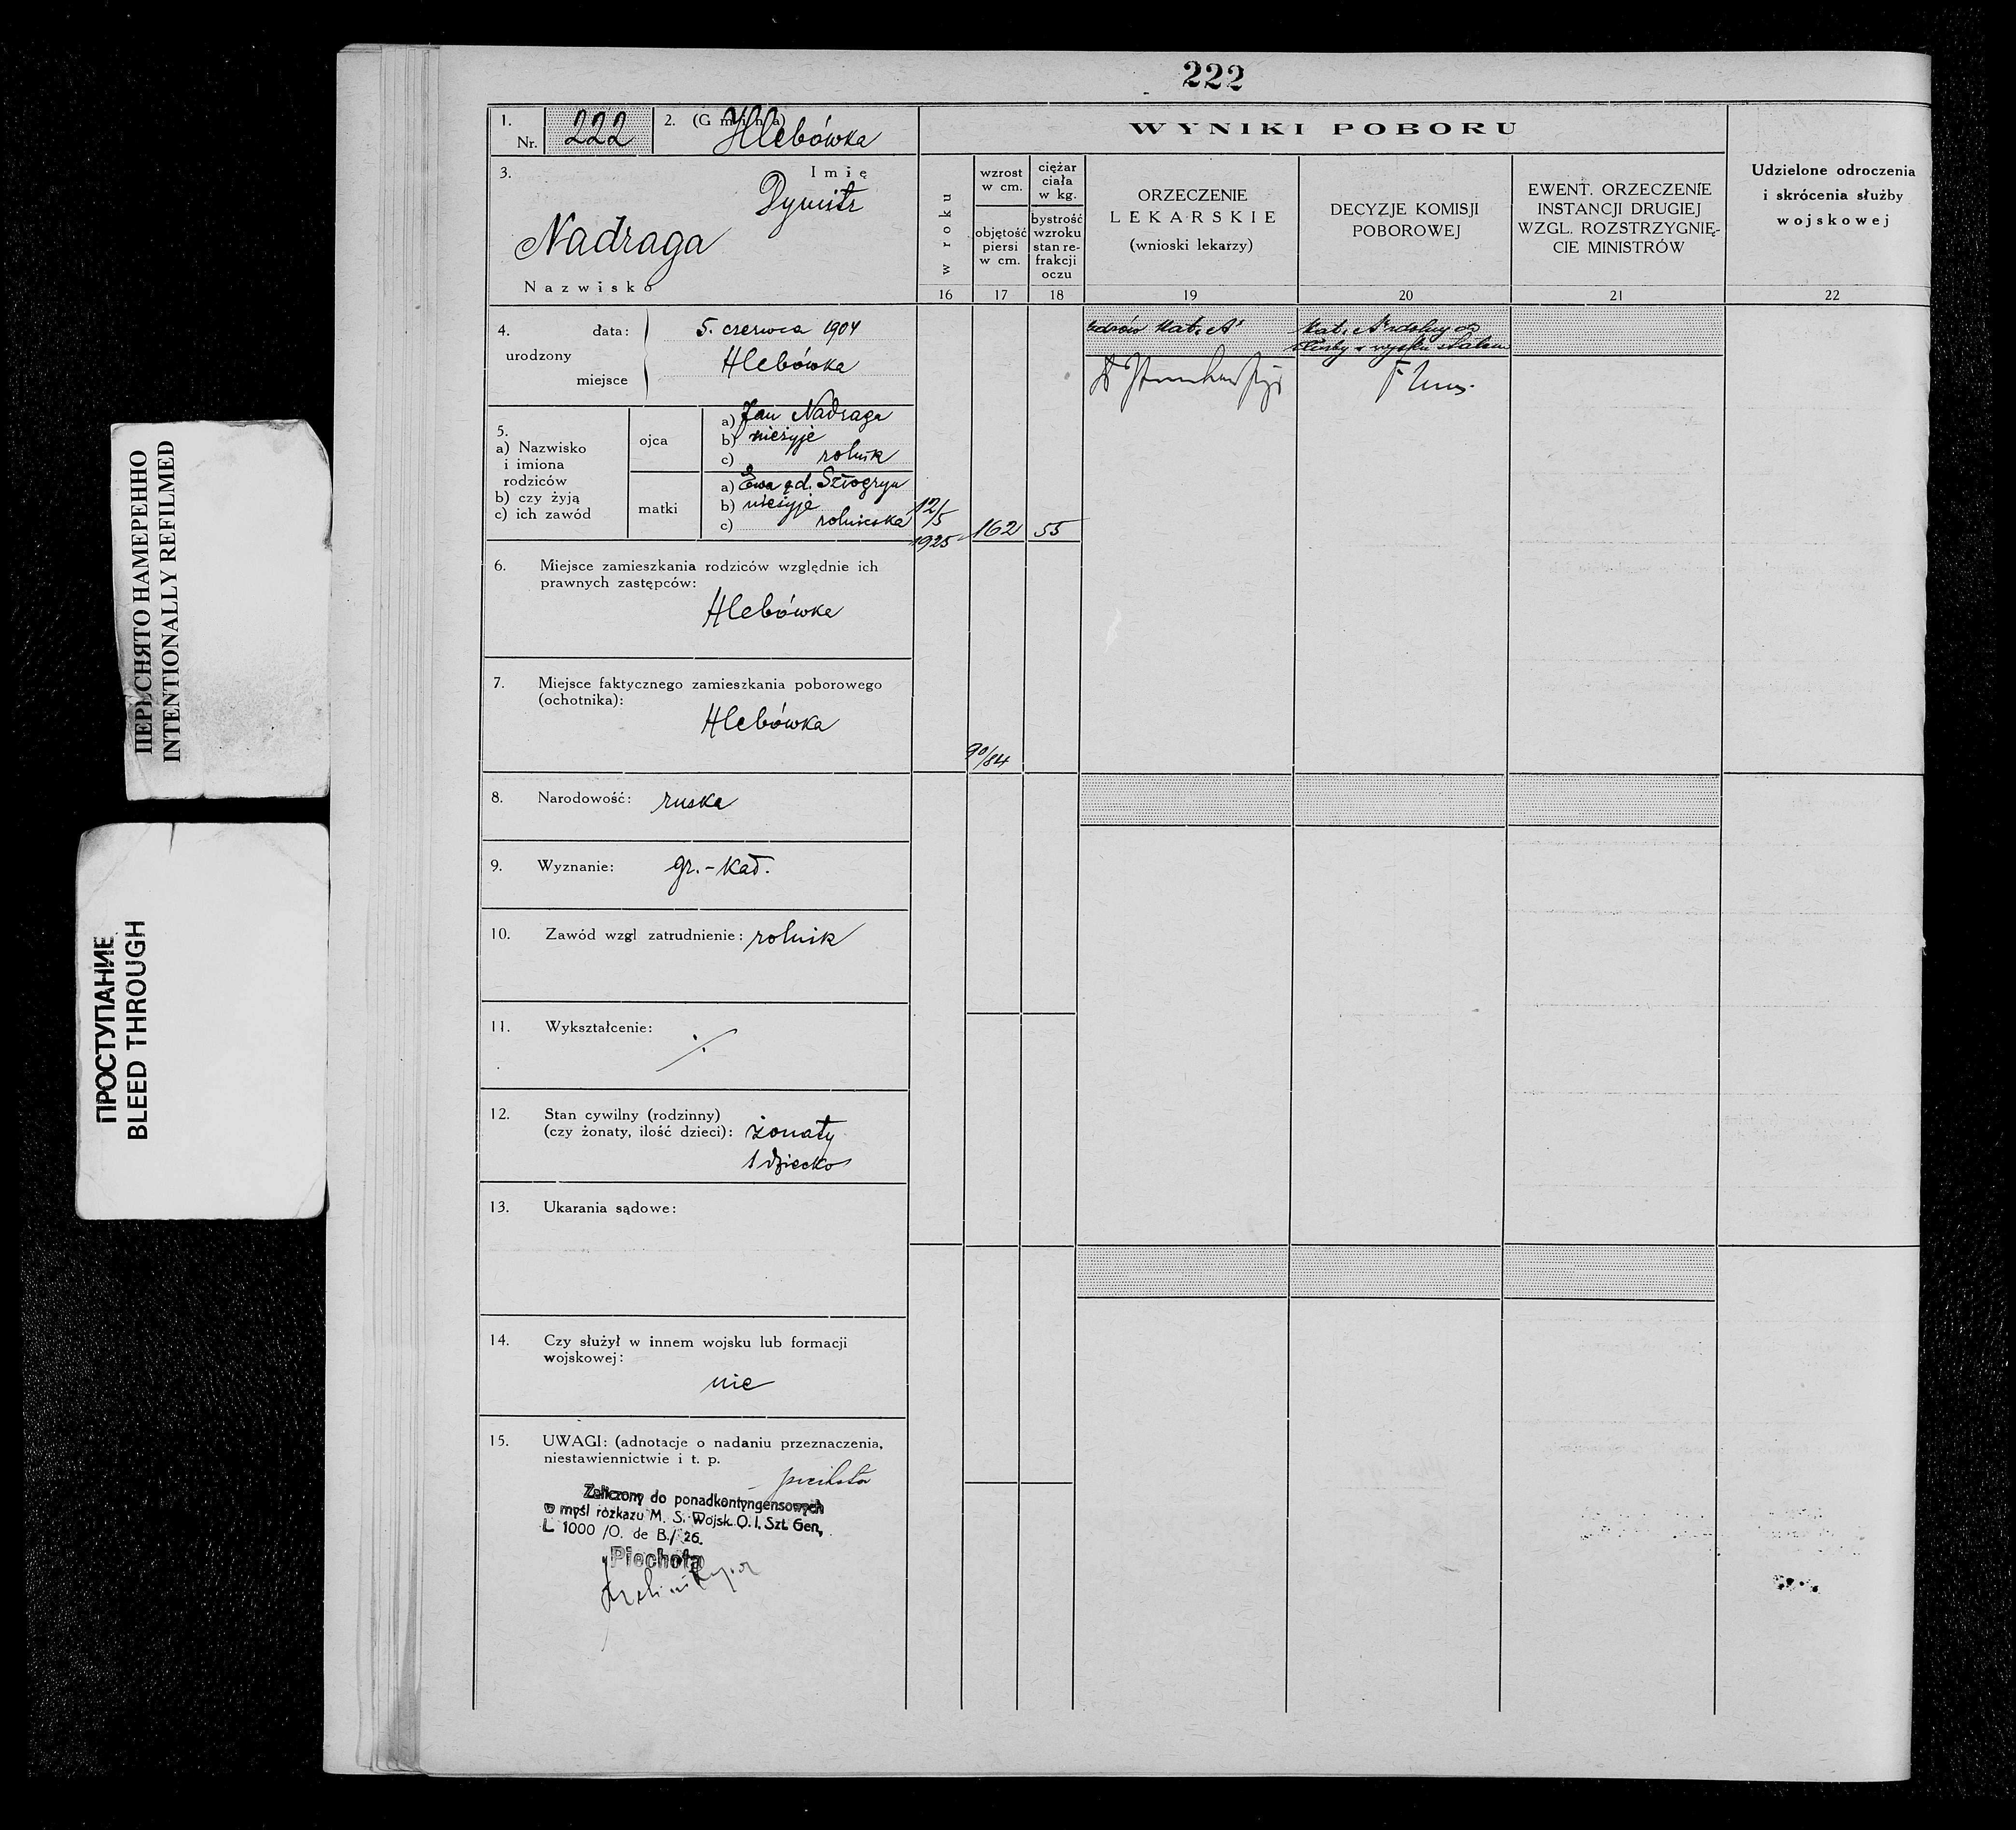 222
1. Nr. 222
2. (Gmina) Hlebówka
3. Imię
Dymitr
Nadraga
Nazwisko
4. urodzony
data: 5. czerwca 1904
miejsce Hlebówka
5.
a) Nazwisko
i imiona
rodziców
b) czy żyją
c) ich zawód
ojca
a) Jan Nadraga
b) nieżyje
c) rolnik
matki
a) Ewa
b) nieżyje
c) rolniczka
6. Miejsce zamieszkania rodziców względnie ich
prawnych zastępców:
Hlebówka
7. Miejsce faktycznego zamieszkania poborowego
(ochotnika):
Hlebówka
8. Narodowość: ruska
9. Wyznanie: gr.-kat.
10. Zawód wzgl zatrudnienie: rolnik
11. Wykształcenie: ·/.
12. Stan cywilny (rodzinny)
(czy żonaty, ilość dzieci): żonaty
1 dziecko
13. Ukarania sądowe:
14. Czy służył w innem wojsku lub formacji
wojskowej:
nie
15. UWAGI: (adnotacje o nadaniu przeznaczenia,
niestawiennictwie i t. p.
piechota
Zaliczony do ponadkontyngensowych
w myśl rozkazu M. S. Wojsk. O. I. Szt. Gen,
L 1000 /O. de B./ 26.
Piechota
WYNIKI POBORU
w roku
wzrost
w cm.
objętość
piersi
w cm.
ciężar
ciała
w kg.
bystrość
wzroku
stan re-
frakcji
oczu
ORZECZENIE
LEKARSKIE
(wnioski lekarzy)
DECYZJE KOMISJI
POBOROWEJ
EWENT. ORZECZENIE
INSTANCJI DRUGIEJ
WZGL. ROZSTRZYGNIĘ-
CIE MINISTRÓW
Udzielone odroczenia
i skrócenia służby
wojskowej
16 17 18 19 20 21 22
12/5
1925
162
55
90/84
zdrów Kat. A
Kat. A zdolny do
służby w wojsku stałem
ПЕРЕСНЯТО НАМЕРЕННО
INTENTIONALLY REFILMED
ПРОСТУПАНИЕ
BLEED THROUGH